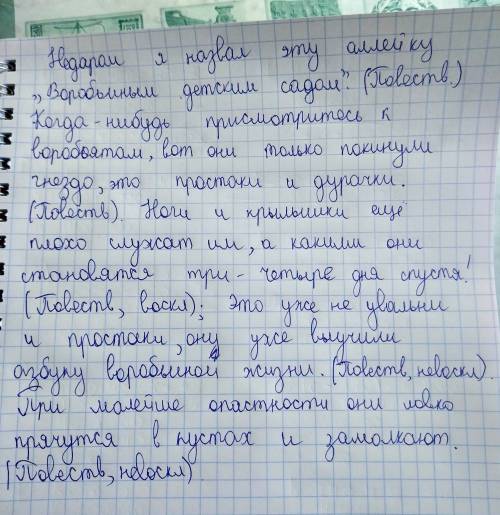 Недаром я назвал эту аллейку
„Воробьиным детским садом". (Повеств.)
Когда-нибудь присмотритесь к
воробьятам, вот они только покинули
гнездо, это простаки и дурачки.
(Повеств). Ноги и крылышки ещё
плохо служат им, а какими они
становятся три-четыре дня спустя!
(Повеств, воскл); Это уже не увальни
и простаки, они уже выучили
азбуку воробьиной жизни. (Повеств, невоскл).
При малейше опастности они ловко
прячутся в кустах и замолкают.
(Повеств, невоскл)